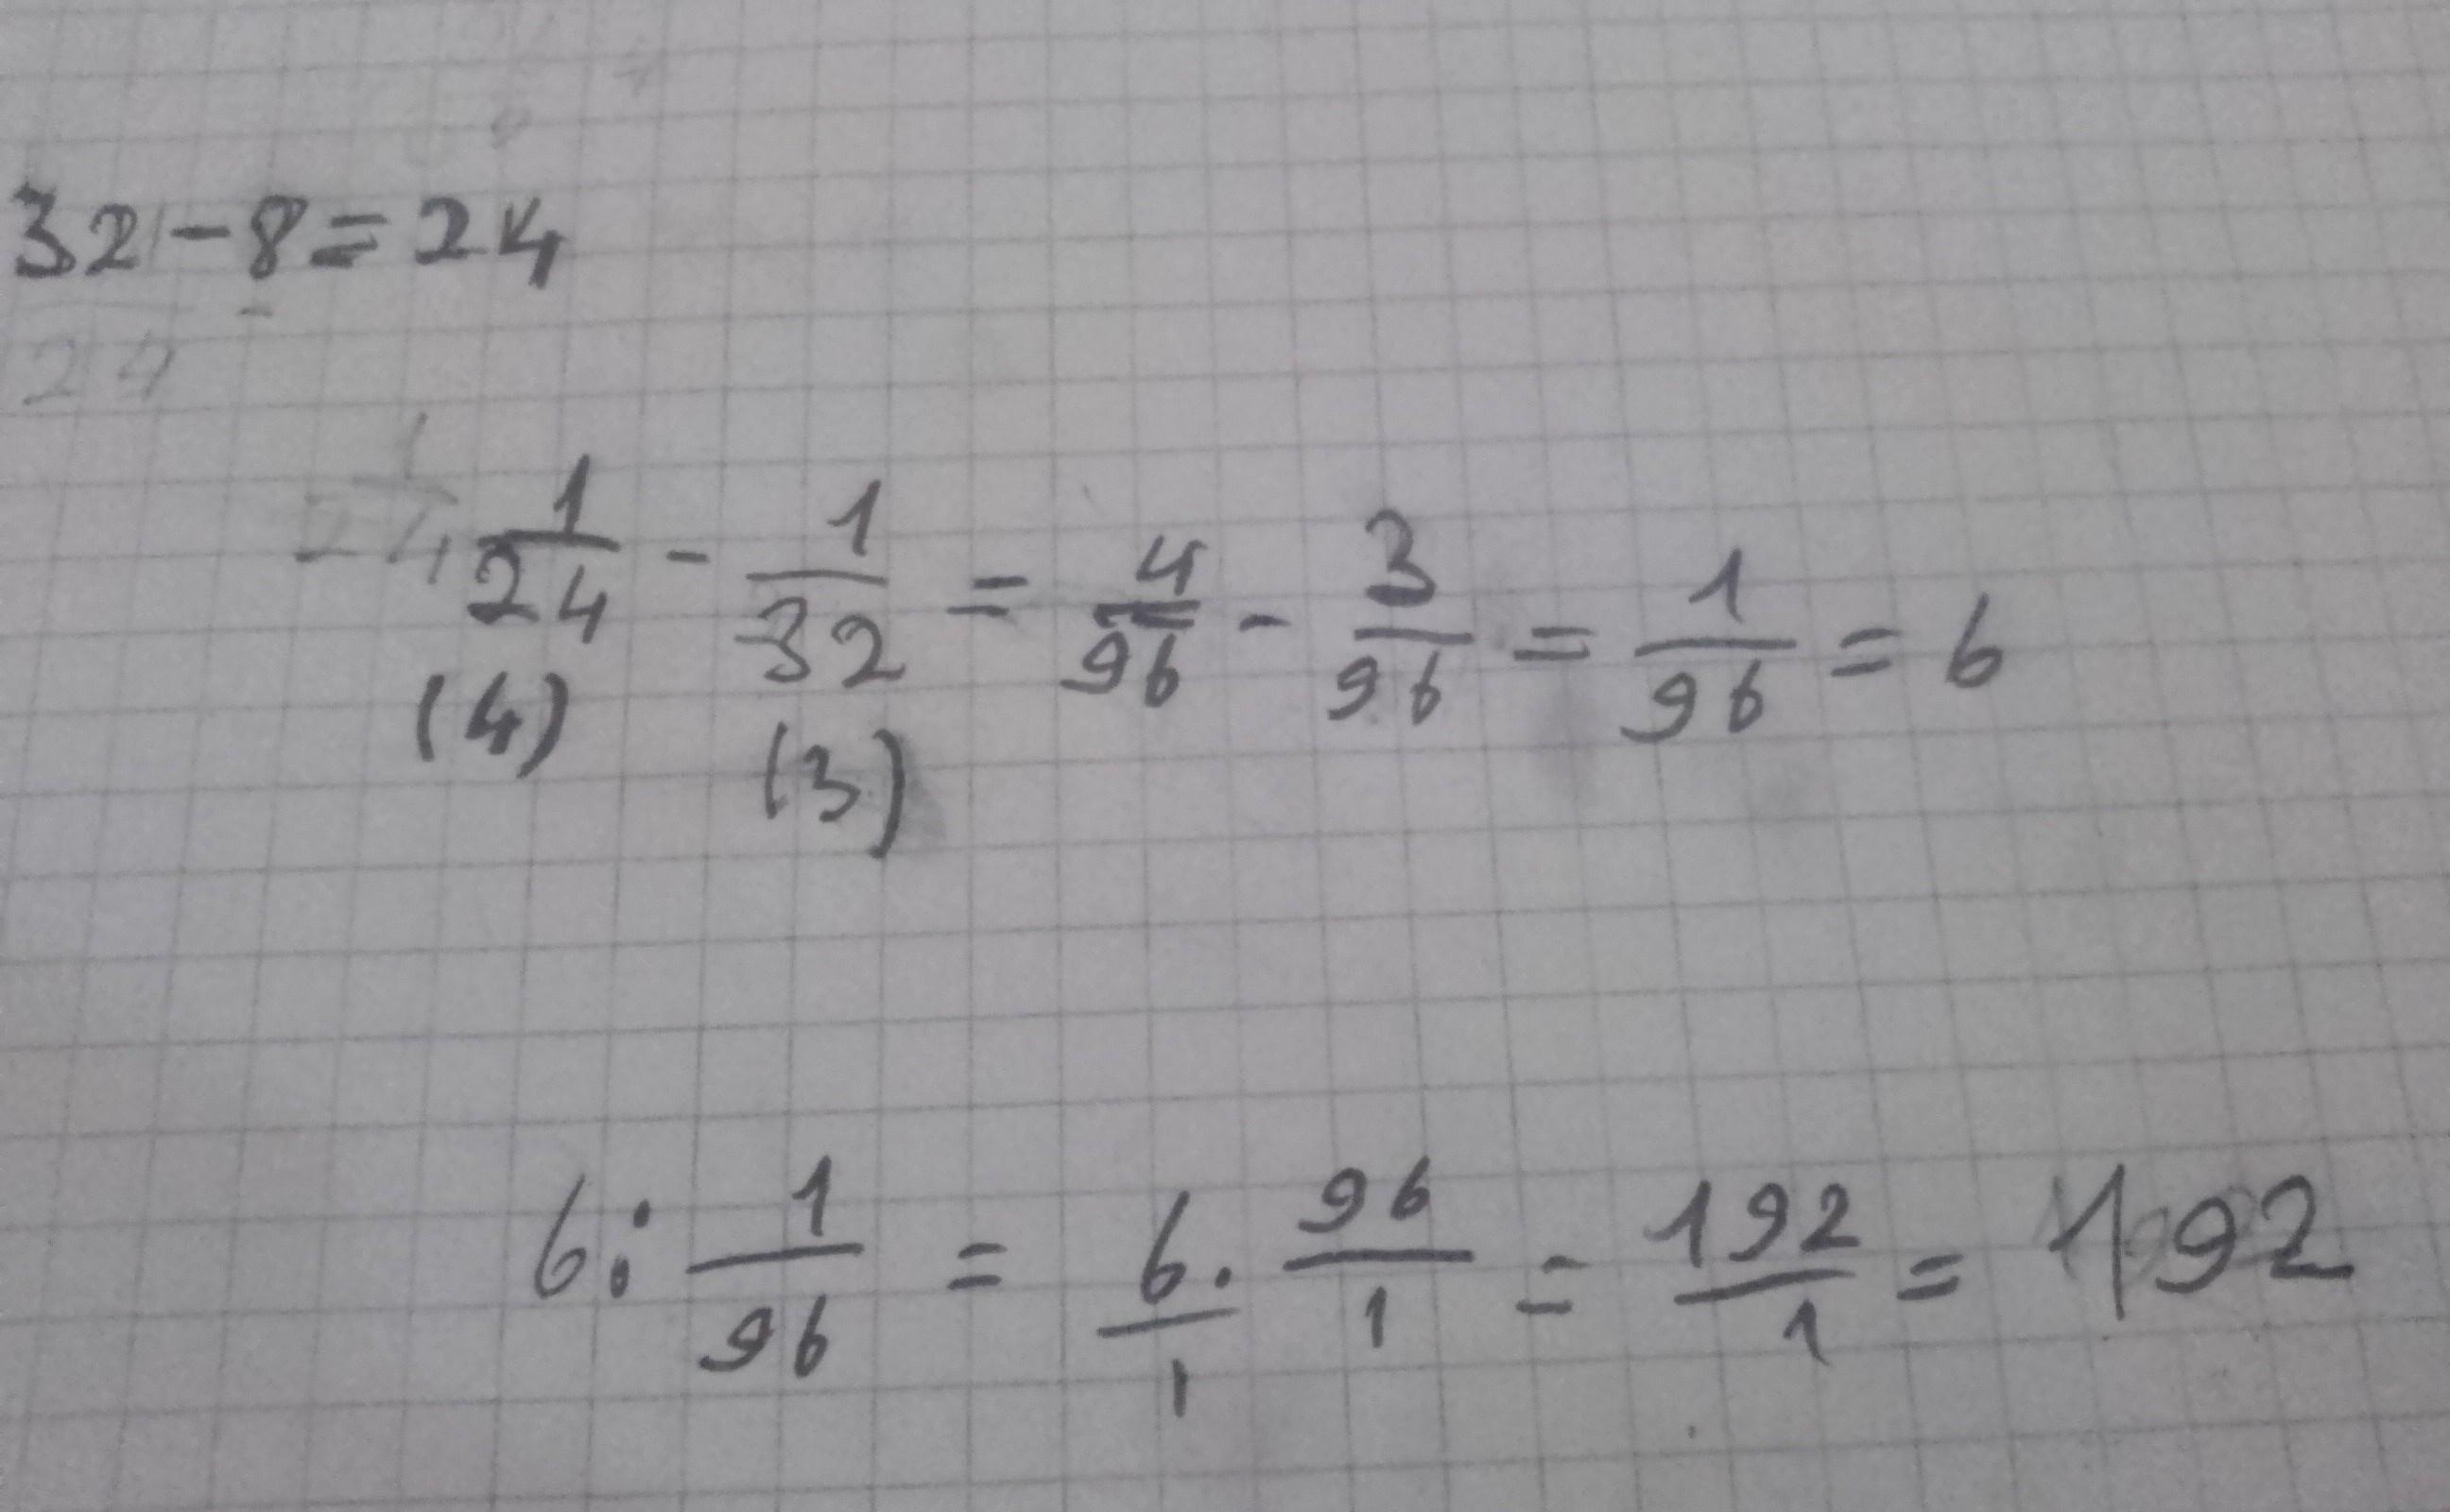 32-8=24
24
1/24 - 1/32 = 4/96 - 3/96 = 1/96 = 6
(4) (3)
6 : 1/96 = 6/1 . 96/1 = 192/1 = 192